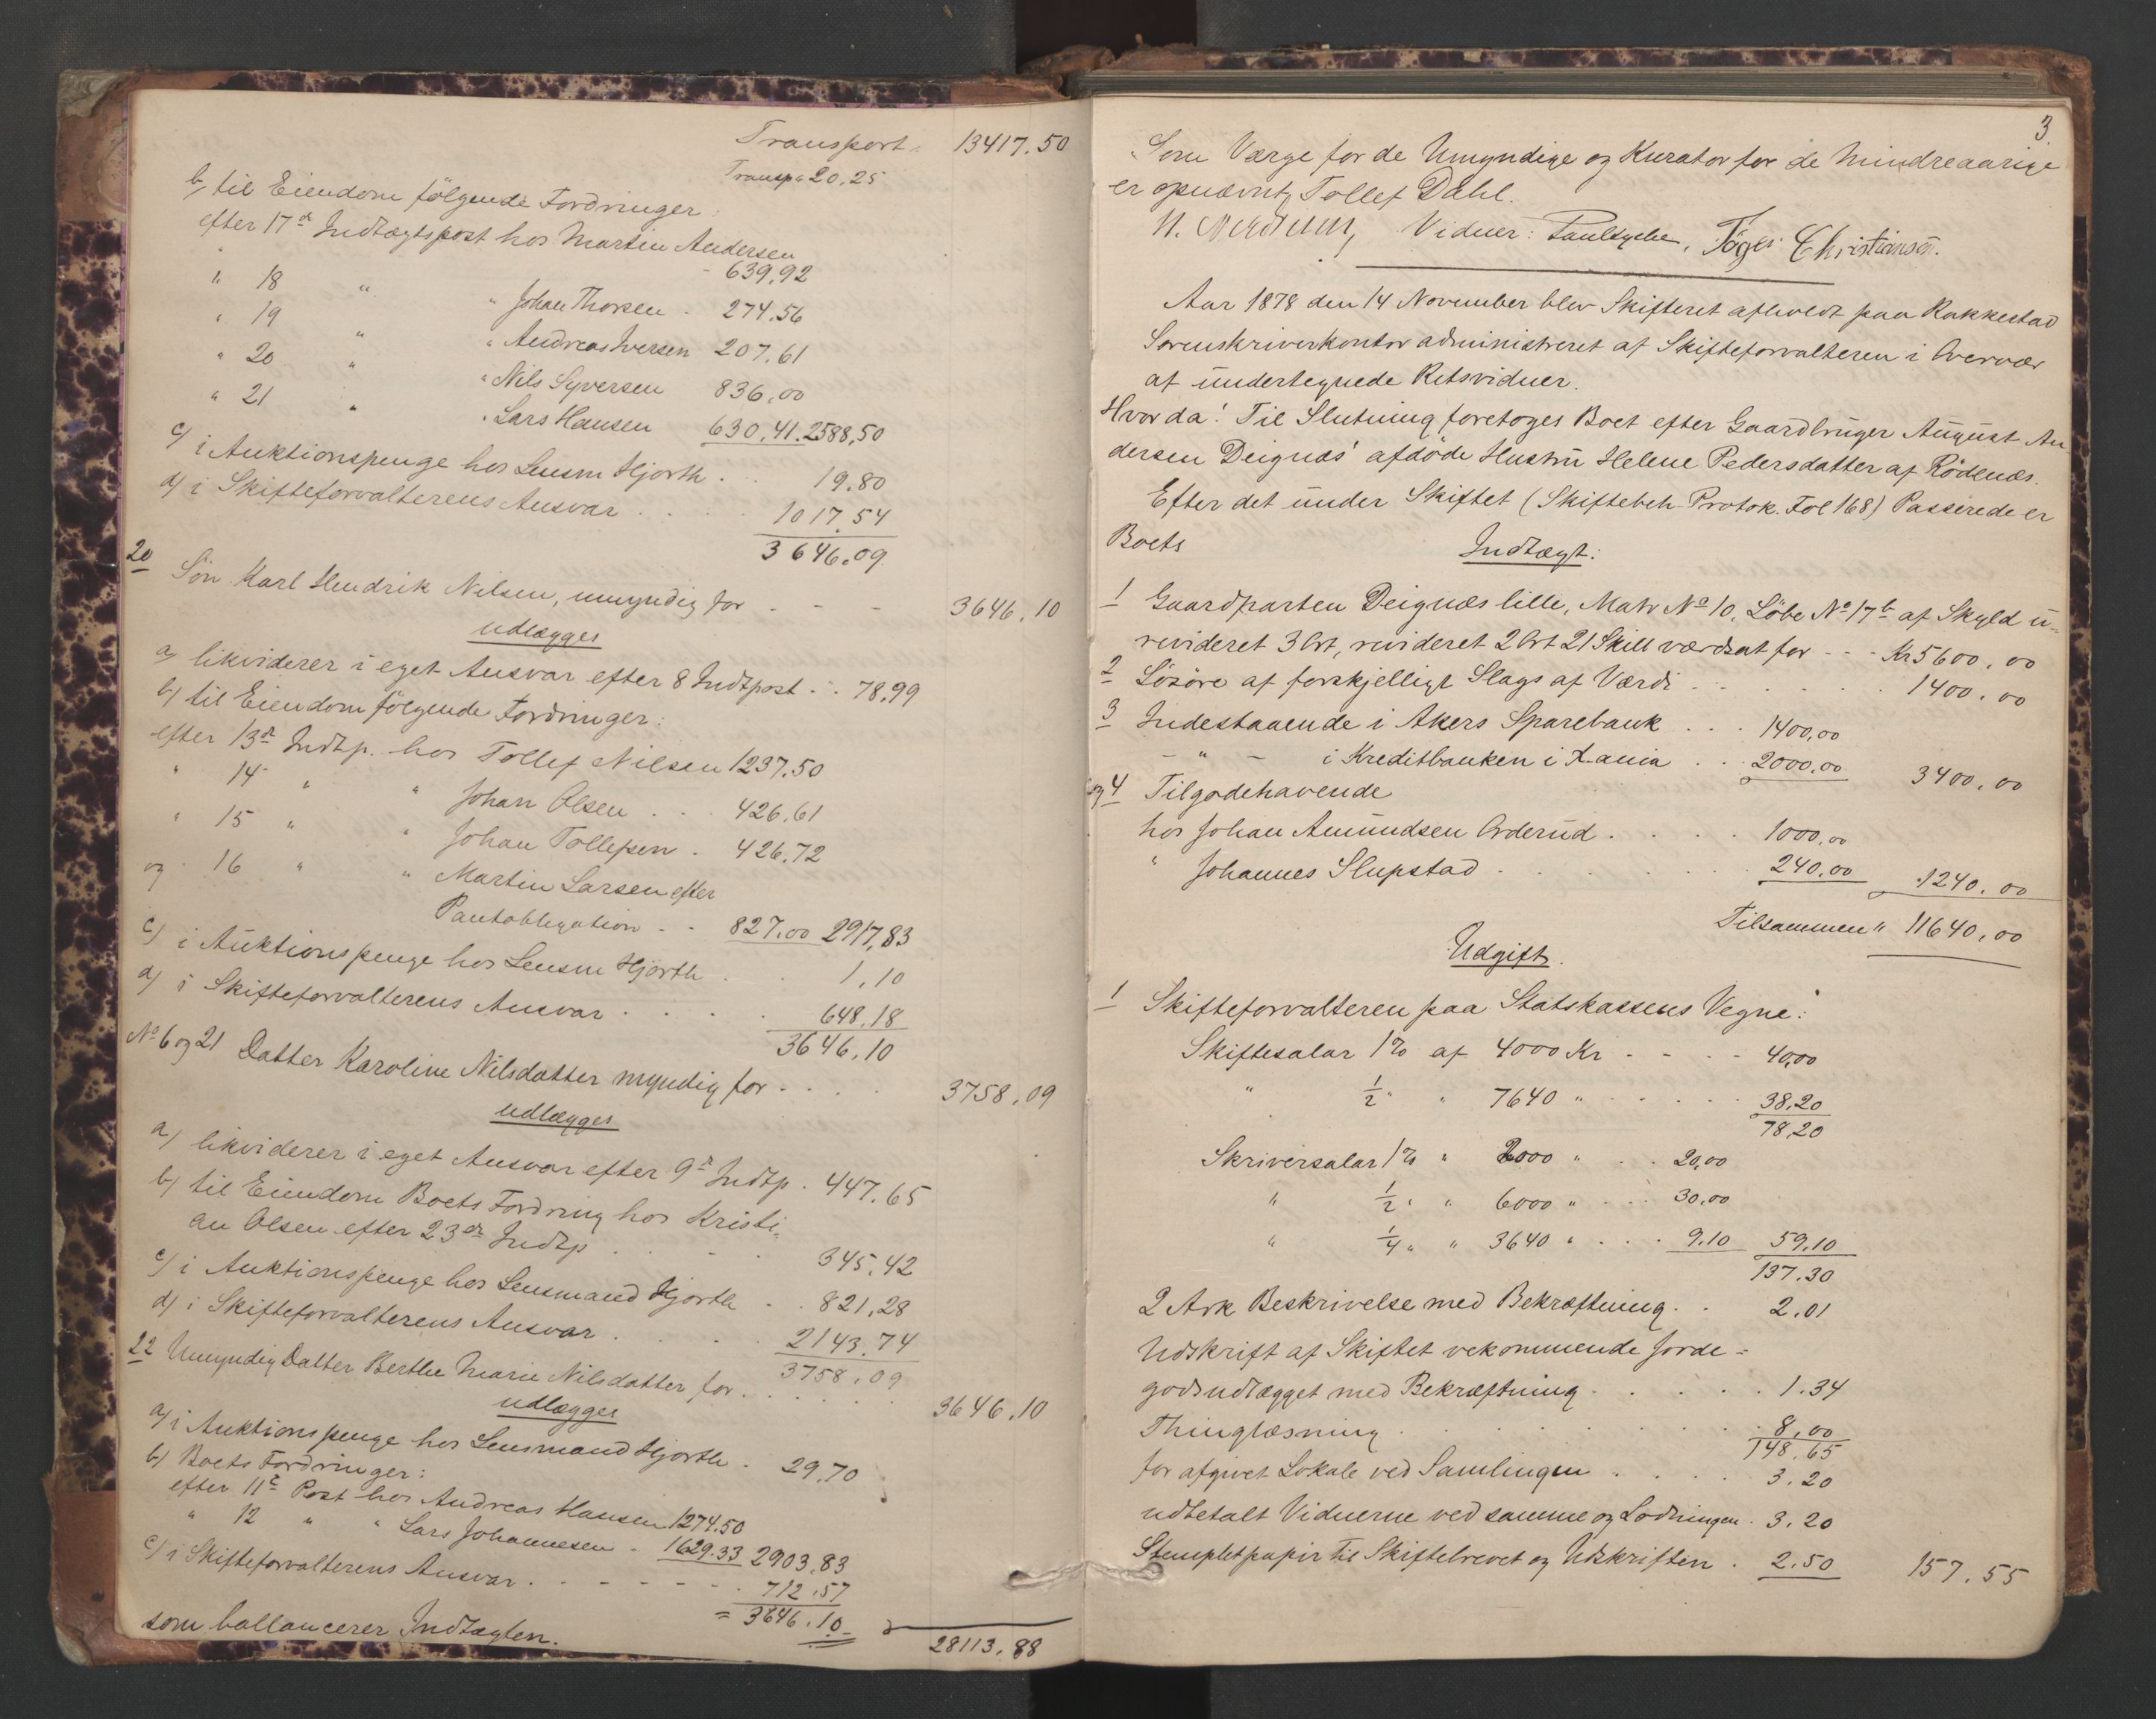 Transport " 13417.50
Transp " 20.25
b, til Eiendom følgende Fordringer:
efter 17de Indtægtspost hos Martin Andersen
- 639,92
" 18 " " Johan Thorsen - 274.56
" 19 " " Andreas Iversen 207.61
" 20 " " Nils Syversen 836,00
" 21 " " Lars Hansen 630,41. 2588,50
c) i Auktionspenge hos Lensm Hjorth . . . 19.80
d) i Skifteforvalterens Ansvar . . . . 1017.54
3646.09
20 Søn Karl Hendrik Nilsen, umyndig for - - - 3646.10
udlægges
a, likviderer i eget Ansvar efter 8 Indtpost . . 78,99
b) til Eiendom følgende Fordringer:
efter 13de Indtp. hos Tollef Nilsen 1237.50
" 14 " " Johan Olsen . . 426,61
" 15 " " Johan Tollefsen . 426,72
og 16 " " Martin Larsen efter
Pantobligation - - 827.00 2917,83
c) i Auktionspenge hos Lensm Hjorth . . 1,10
d) i Skifteforvalterens Ansvar . . . . 648,18
3646,10
No 6 og 21 Datter Karoline Nilsdatter myndig for . . . . 3758,09
udlægges
a) likviderer i eget Ansvar efter 9de Indtp . 447.65
b) til Eiendom Boets Fordring hos Kristi-
an Olsen efter 23de Indtp . . . . 345,42
c) i Auktionspenge hos Lensmand Hjorth - . 821,28
d) i Skifteforvalterens Ansvar . . . . 2143.74
3758.09
22 Umyndig Datter Berthe Marie Nilsdatter for . . . . 3646.10
udlægges
a) i Auktionspenge hos Lensmand Hjorth . 29.70
b) Boets Fordringer:
efter 11te Post hos Andreas Hansen 1274.50
" 12 " " Lars Johannesen - 1629.33 2903,83
c) i Skifteforvalterens Ansvar . - - - - - . 712.57
= 3646.10
som ballancerer Indtægten. 28113.88
3
Som Værge for de Umyndige og Kurator for de Mindreaarige
er opnævnt Tollef Dahl.
N. Vidner: Christiansen.
Aar 1878 den 14 November blev Skifteret afholdt paa Rakkestad
Sorenskriverkontor administreret af Skifteforvalteren i Overvær
af undertegnede Retsvidner.
Hvor da! Til Slutning foretoges Boet efter Gaardbruger August An
dersen Deignæs' afdøde Hustru Helene Pedersdatter af Rødenæs.
Efter det under Skiftet (Skiftebeh-Protok. Fol 168) Passerede er
Boets Indtægt:
1 Gaardparten Deignæs lille, Matr No 10, Løbe No 17b af Skyld u-
revideret 3 Ort, revideret 2 Ort 21 Skill værdsat for - - - Kr 5600,00
2 Løsøre af forskjelligt Slags af Værdi . . . . . . . 1400.00
3 Indestaaende i Akers Sparebank . . . 1400,00
- " - i Kreditbanken i Xania . . 2000.00 3400,00
og 4 Tilgodehavende
hos Johan Amundsen Orderud . . . . 1000,00
" Johannes Slupstad . . . . . 240,00 1240.00
Tilsammen " 11640,00
Udgift.
1 Skifteforvalteren paa Statskassens Vegne:
Skiftesalar 1% af 4000 Kr - - - - 40,00
" 1/2 " " 7640 " - - - - 38,20
78,20
Skriversalar 1% " 2000 " . . . 20,00
" 1/2 " " 6000 " . . . 30.00
" 1/4 " " 3640 " . . . 9.10 59.10
137.30
2 Ark Beskrivelse med Bekræftning . . 2.01
Udskrift af Skiftet vekommende Jorde=
godsudlægget med Bekræftning . . . . . 1.34
Thinglæsning . . . . . . 8,00
148,65
for afgivet Lokale ved Samlingen . . . . 3.20
udbetalt Vidnerne ved samme og Lodningen . 3.20
Stempletpapir til Skiftebrevet og Udskriften . 2.50 157.55